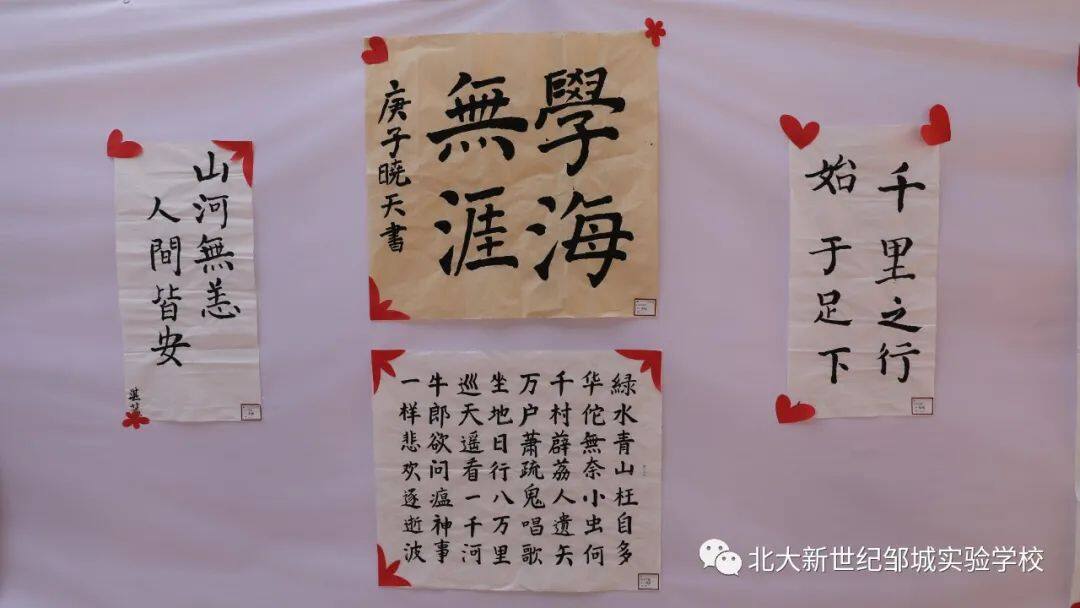 山河無恙
人間皆安
學海
無涯
庚子曉天書
緑水青山枉自多
华佗無奈小虫何
千村薜荔人遺矢
万户蕭疏鬼唱歌
坐地日行八万里
巡天遥看一千河
牛郎欲问瘟神事
一样悲欢逐逝波
千里之行
始于足下
北大新世纪邹城实验学校